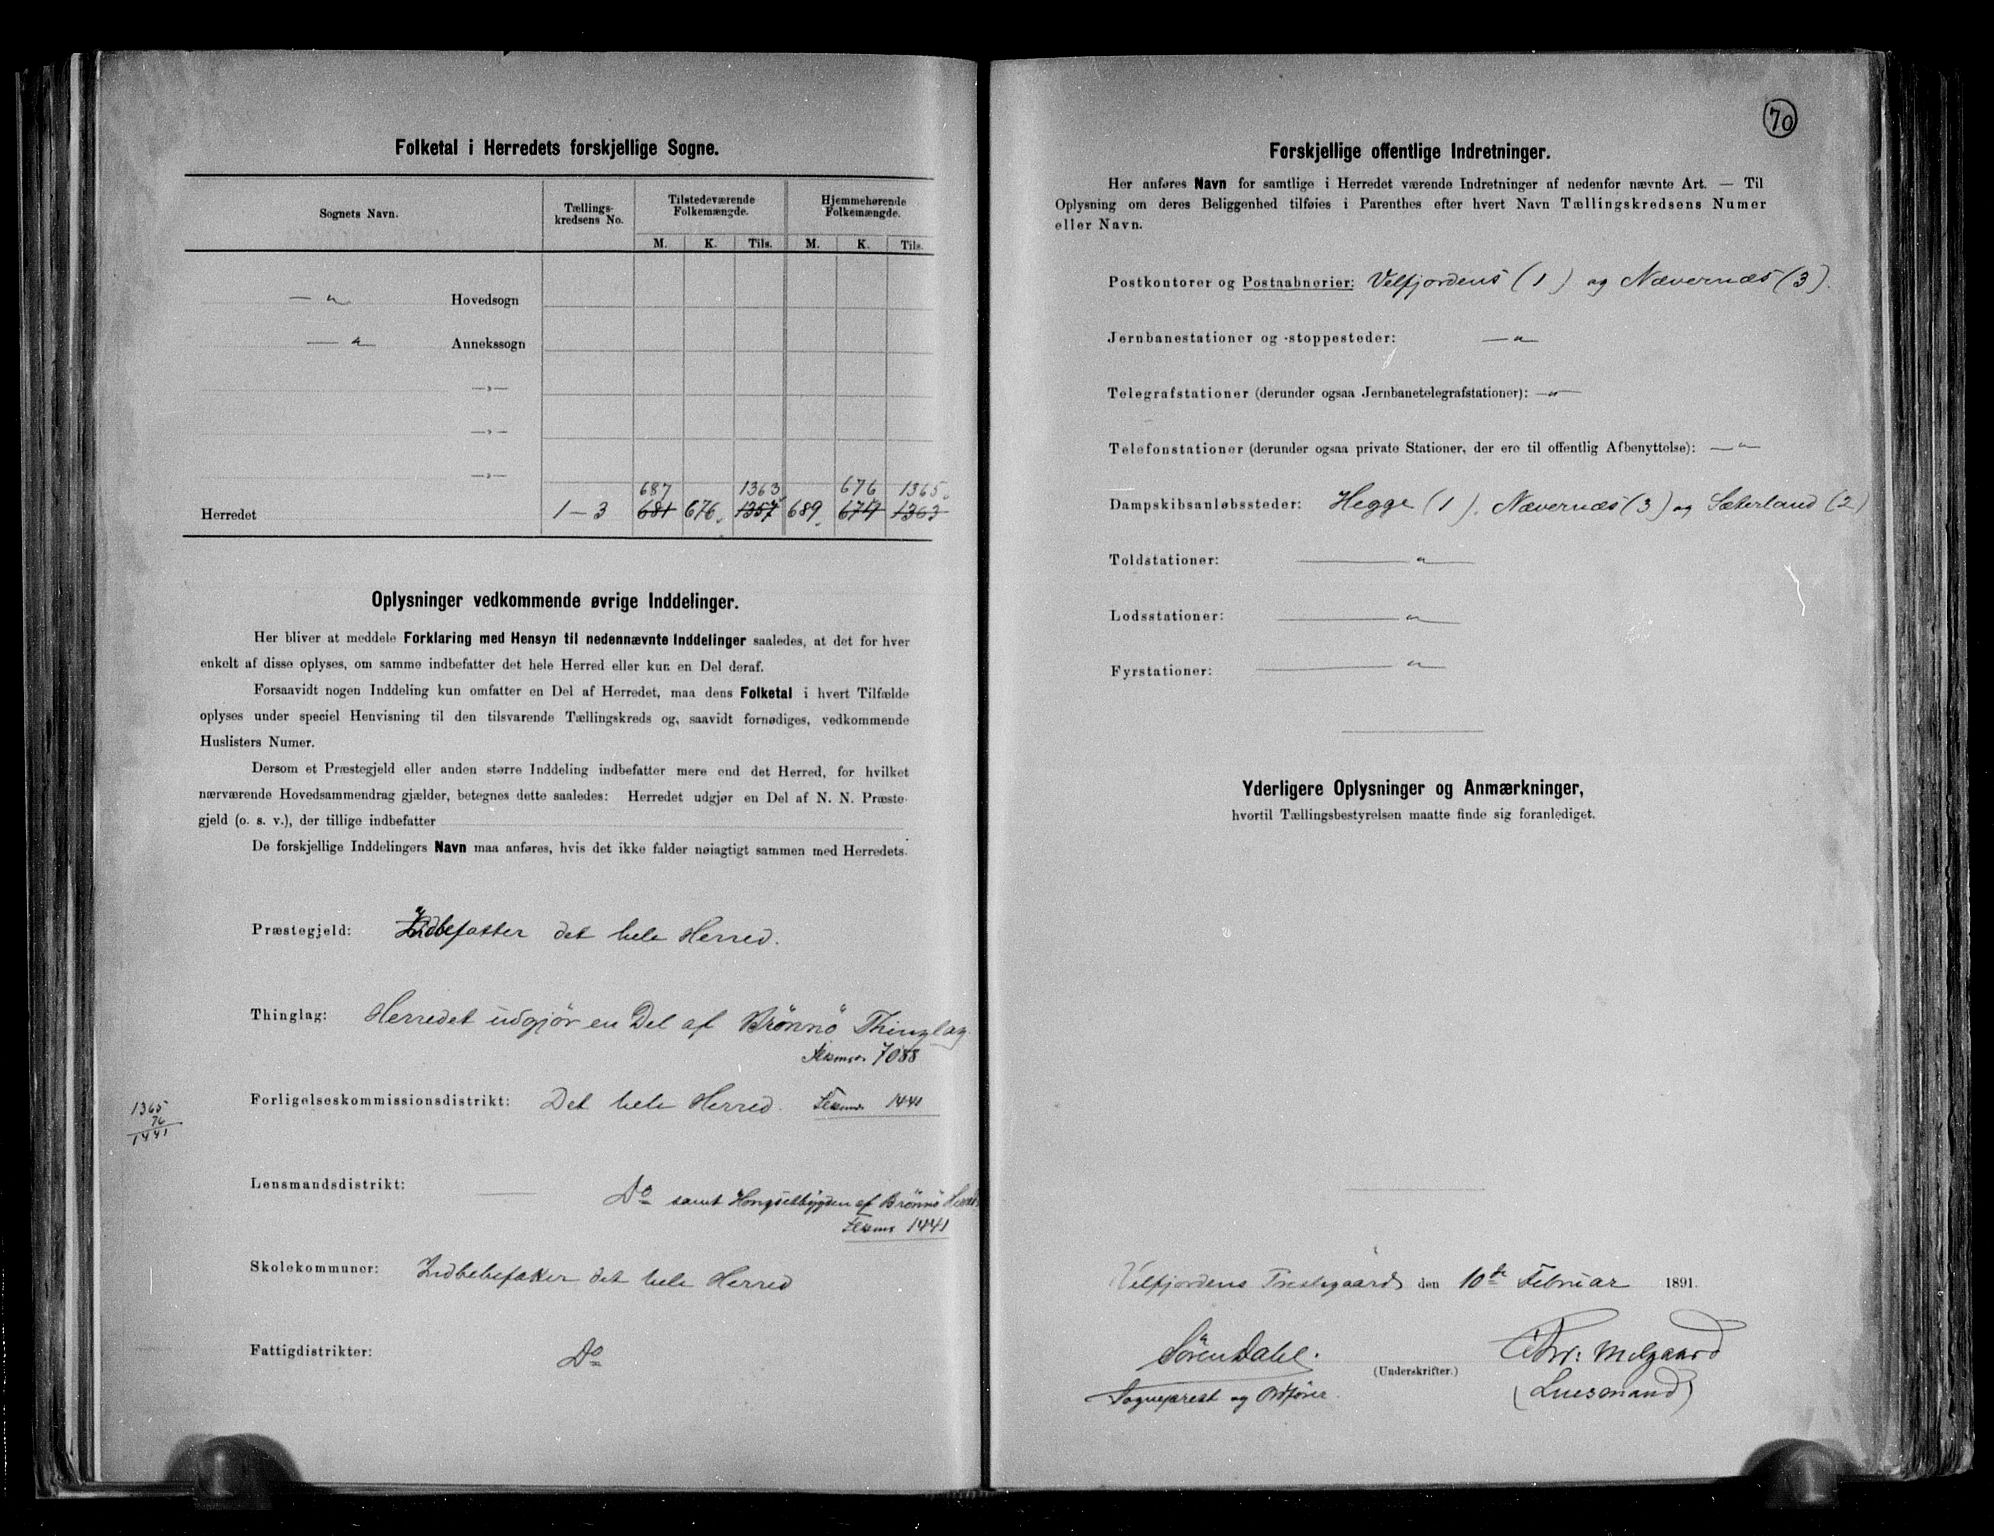 Folketal i Herredets forskjellige Sogne.
Sognets Navn. Tællings-kredsens No. Tilstedeværende Folkemængde. Hjemmehørende Folkemængde.
M. K. Tils. M. K. Tils.
— " Hovedsogn
— " Annekssogn
—»—
—»—
—»—
687 1363 676 1365.
Herredet 1-3 681 676. 1357 689. 674 1363
Oplysninger vedkommende øvrige Inddelinger.
Her bliver at meddele Forklaring med Hensyn til nedennævnte Inddelinger saaledes, at det for hver
enkelt af disse oplyses, om samme indbefatter det hele Herred eller kun en Del deraf.
Forsaavidt nogen Inddeling kun omfatter en Del af Herredet, maa dens Folketal i hvert Tilfælde
oplyses under speciel Henvisning til den tilsvarende Tællingskreds og, saavidt fornødiges, vedkommende
Huslisters Numer.
Dersom et Præstegjeld eller anden større Inddeling indbefatter mere end det Herred, for hvilket
nærværende Hovedsammendrag gjælder, betegnes dette saaledes: Herredet udgjør en Del af N. N. Præste-
gjeld (o. s. v.), der tillige indbefatter
De forskjellige Inddelingers Navn maa anføres, hvis det ikke falder nøiagtigt sammen med Herredets.
Præstegjeld: Indbefatter det hele Herred.
Thinglag: Herredet udgjör en Del af Brönnö Thinglag
7088
Forligelseskommissionsdistrikt: Det hele Herred. 1441
1365
76
1441
Lensmandsdistrikt: Do samt Hongsetbygden af Brönnö Herred
1441
Skolekommuner: Indbebefatter det hele Herred
Fattigdistrikter: Do
70
Forskjellige offentlige Indretninger.
Her anføres Navn for samtlige i Herredet værende Indretninger af nedenfor nævnte Art. — Til
Oplysning om deres Beliggenhed tilføies i Parenthes efter hvert Navn Tællingskredsens Numer
eller Navn.
Postkontorer og Postaabnerier: Velfjordens (1) og Nævernæs (3).
Jernbanestationer og -stoppesteder: — "
Telegrafstationer (derunder ogsaa Jernbanetelegrafstationer): — "
Telefonstationer (derunder ogsaa private Stationer, der ere til offentlig Afbenyttelse): — "
Dampskibsanløbssteder: Hegge (1). Nævernæs (3) og Sæterland (2)
Toldstationer: — "
Lodsstationer: — "
Fyrstationer: — "
Yderligere Oplysninger og Anmærkninger,
hvortil Tællingsbestyrelsen maatte finde sig foranlediget.
Velfjordens Prestegaard den 10de Februar 1891.
Sören Dahl. Chr: Melgaard
(Underskrifter.)
Sogneprest og Ordförer. (Lensmand)